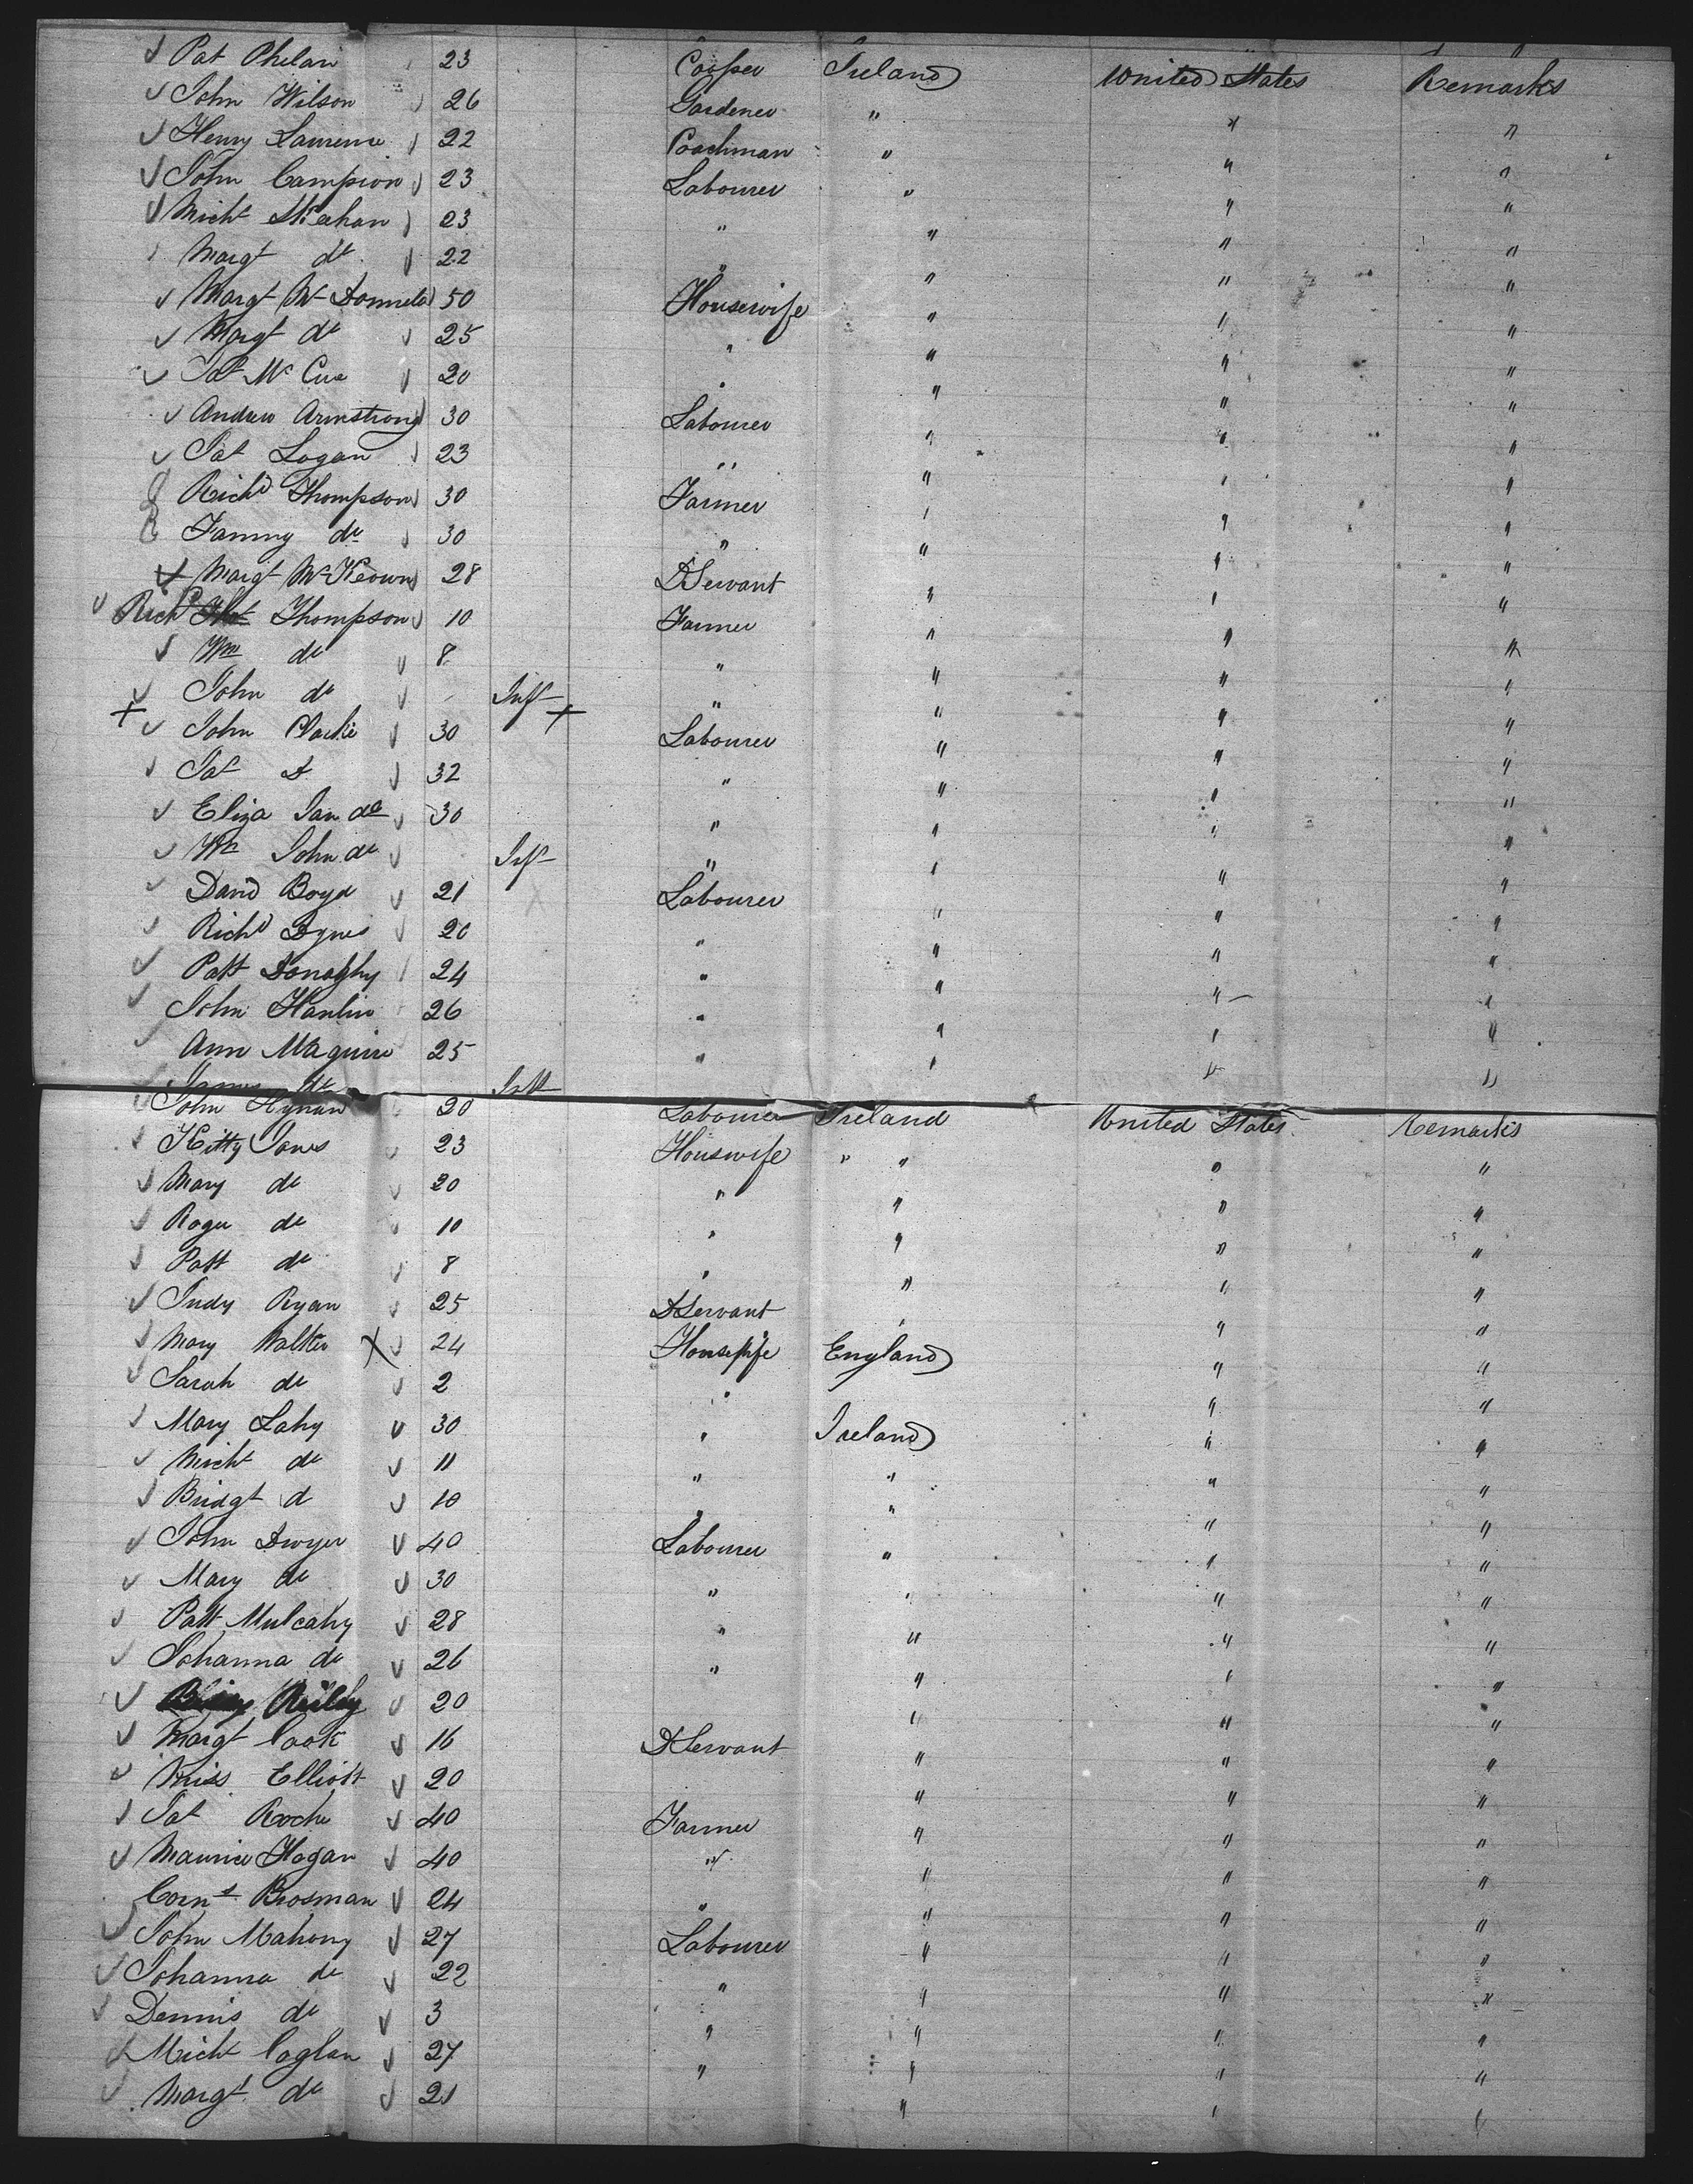 Pat Phelan 23 Cooper Ireland United States Remarks
John Wilson 26 Gardener " " "
Henry Lawrence 22 Coachman " " "
John Campion 23 Labourer " " "
Michl Meehan 23 " " " "
Margt do 22 " " " "
Margt Mc Donnell 50 Housewife " " "
Margt do 25 " " " "
Pat Mc Cue 20 " " " "
Andrew Armstrong 30 Labourer " " "
Pat Logan 23 " " " "
Richd Thompson 30 Farmer " " "
Fanny do 30 " " " "
Margt Mc Keown 28 D Servant " " "
Richd Thompson 10 Farmer " " "
Wm do 8 " " " "
John do Inft " " " "
John Clarke 30 Labourer " " "
Pat D 32 " " " "
Eliza Jan do 30 " " " "
Wm John do Inft " " " "
David Boyd 21 Labourer " " "
Richd Dynes 20 " " " "
Patt Donaghy 24 " " " "
John Hanlin 26 " " " "
Ann Maguire 25 " " " "
James do Inft
John Hynan 20 Labourer Ireland United States Remarks
Kitty Jones 23 Houswife " " " "
Mary do 20 " " " "
Roger do 10 " " " "
Patt do 8 " " " "
Judy Ryan 25 D Servant " " "
Mary Walker 24 Housewife England " "
Sarah do 2 " " "
Mary Lahy 30 " Ireland " "
Michl do 11 " " " "
Bridgt d 10 " " " "
John Dwyer 40 Labourer " " "
Mary do 30 " " " "
Patt Mulcahy 28 " " " "
Johanna do 26 " " " "
Reilly 20 " " "
Margt Cook 16 D Servant " " "
Miss Elliott 20 " " "
Pat Roche 40 Farmer " " "
Maurice Hogan 40 " " " "
Corns Brosman 24 " " " "
John Mahony 27 Labourer " " "
Johanna do 22 " " " "
Dennis do 3 " " " "
Michl Coglan 27 " " " "
Margt do 21 " " "